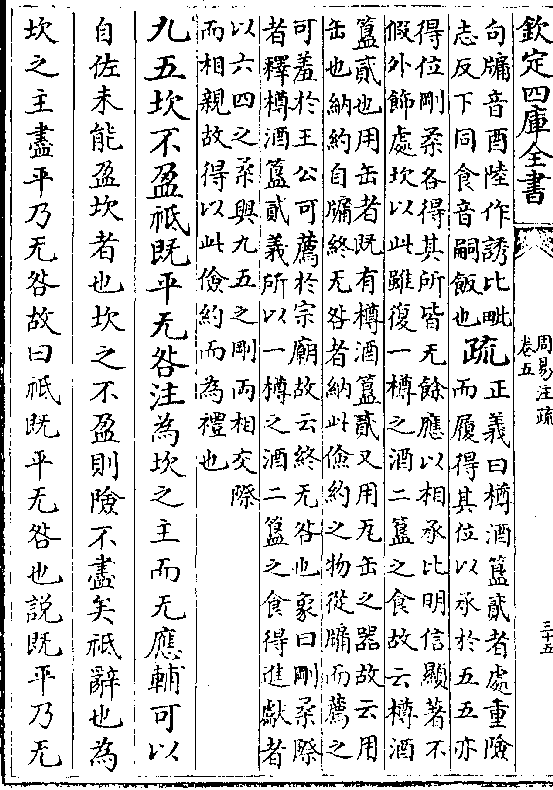 欽定四庫全書
周易注疏
卷五
三十五
句牖音酉陸作誘比毗
志反下同食音嗣飯也
疏
正義曰樽酒簋貳者處重險
而履得其位以承於五五亦
得位剛柔各得其所皆无餘應以相承比明信顯著不
假外飾處坎以此雖復一樽之酒二簋之食故云樽酒
簋貳也用缶者既有樽酒簋貳又用瓦缶之器故云用
缶也納約自牖終无咎者納此儉約之物從牖而薦之
可羞於王公可薦於宗廟故云終无咎也象曰剛柔際
者釋樽酒簋貳義所以一樽之酒二簋之食得進獻者
以六四之柔與九五之剛兩相交際
而相親故得以此儉約而為禮也
九五坎不盈祗既平无咎注為坎之主而无應輔可以
自佐未能盈坎者也坎之不盈則險不盡矣祗辭也為
坎之主盡平乃无咎故曰祗既平无咎也說既平乃无